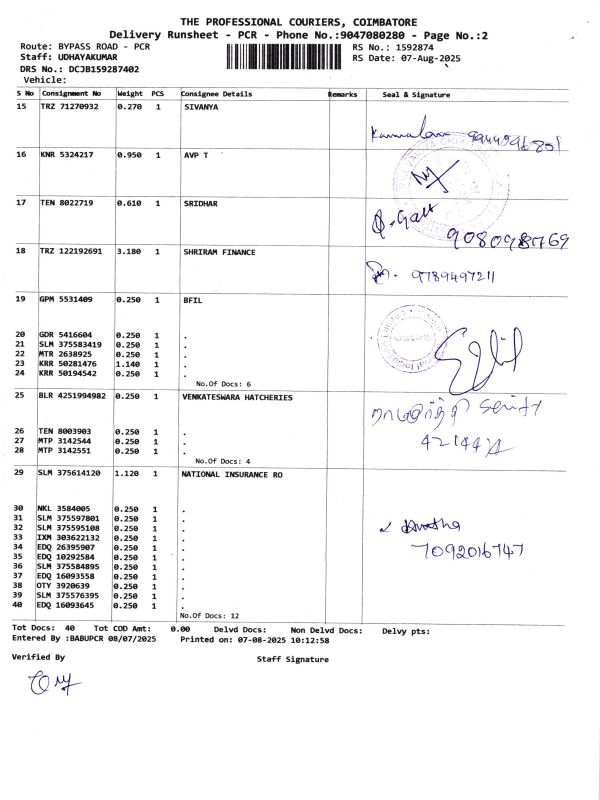 THE PROFESSIONAL COURIERS, COIMBATORE
Delivery Runsheet - PCR - Phone No.:9047080280 - Page No.:2
Route: BYPASS ROAD - PCR RS No.: 1592874
Staff: UDHAYAKUMAR RS Date: 07-Aug-2025
DRS No.: DCJB159287402
Vehicle:
S No Consignment No Weight PCS Consignee Details Remarks Seal & Signature
15 TRZ 71270932 0.270 1 SIVANYA
16 KNR 5324217 0.950 1 AVP T
17 TEN 8022719 0.610 1 SRIDHAR
9080981769
18 TRZ 122192691 3.180 1 SHRIRAM FINANCE
9789497211
19 GPM 5531409 0.250 1 BFIL
20 GDR 5416604 0.250 1 .
21 SLM 375583419 0.250 1 .
22 MTR 2638925 0.250 1 .
23 KRR 50281476 1.140 1 .
24 KRR 50194542 0.250 1 .
No.Of Docs: 6
25 BLR 4251994982 0.250 1 VENKATESWARA HATCHERIES
26 TEN 8003903 0.250 1 .
27 MTP 3142544 0.250 1 .
28 MTP 3142551 0.250 1 .
No.Of Docs: 4
29 SLM 375614120 1.120 1 NATIONAL INSURANCE RO
30 NKL 3584005 0.250 1 .
31 SLM 375597801 0.250 1 .
32 SLM 375595108 0.250 1 .
33 IXM 303622132 0.250 1 .
34 EDQ 26395907 0.250 1 .
35 EDQ 10292584 0.250 1 .
36 SLM 375584895 0.250 1 .
37 EDQ 16093558 0.250 1 .
38 OTY 3920639 0.250 1 .
39 SLM 375576395 0.250 1 .
40 EDQ 16093645 0.250 1 .
7092016747
No.Of Docs: 12
Tot Docs: 40 Tot COD Amt: 0.00 Delvd Docs: Non Delvd Docs: Delvy pts:
Entered By :BABUPCR 08/07/2025 Printed on: 07-08-2025 10:12:58
Verified By Staff Signature